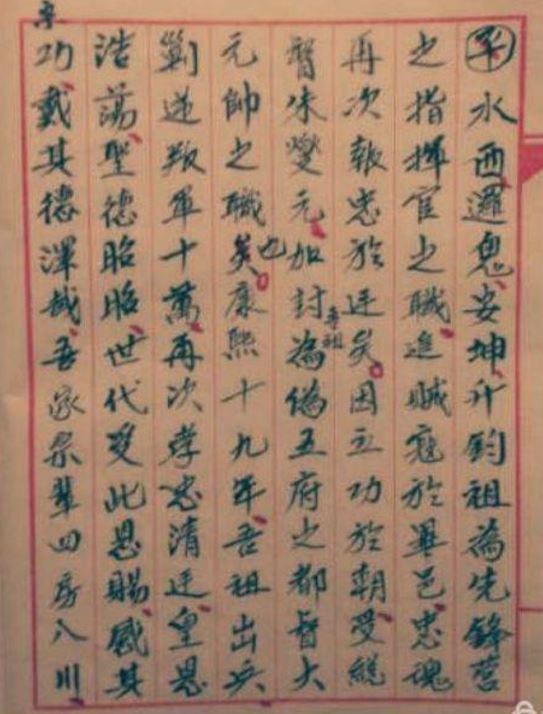 平水西邏鬼、安坤、升鈞祖為先鋒營
之指揮官之職、進贓寇於畢邑、忠魂
再次報忠於廷矣。因立功於朝、受總
督朱燮元、加討為偽五府之都督大
元帥之職矣也。康熙十九年、吾祖出兵、
剿逆叛軍十萬、再次孝忠清廷、皇恩
浩蕩、聖德昭昭、世代受此恩賜、感其
功、戴其德澤哉、吾家宗輩四房八川、